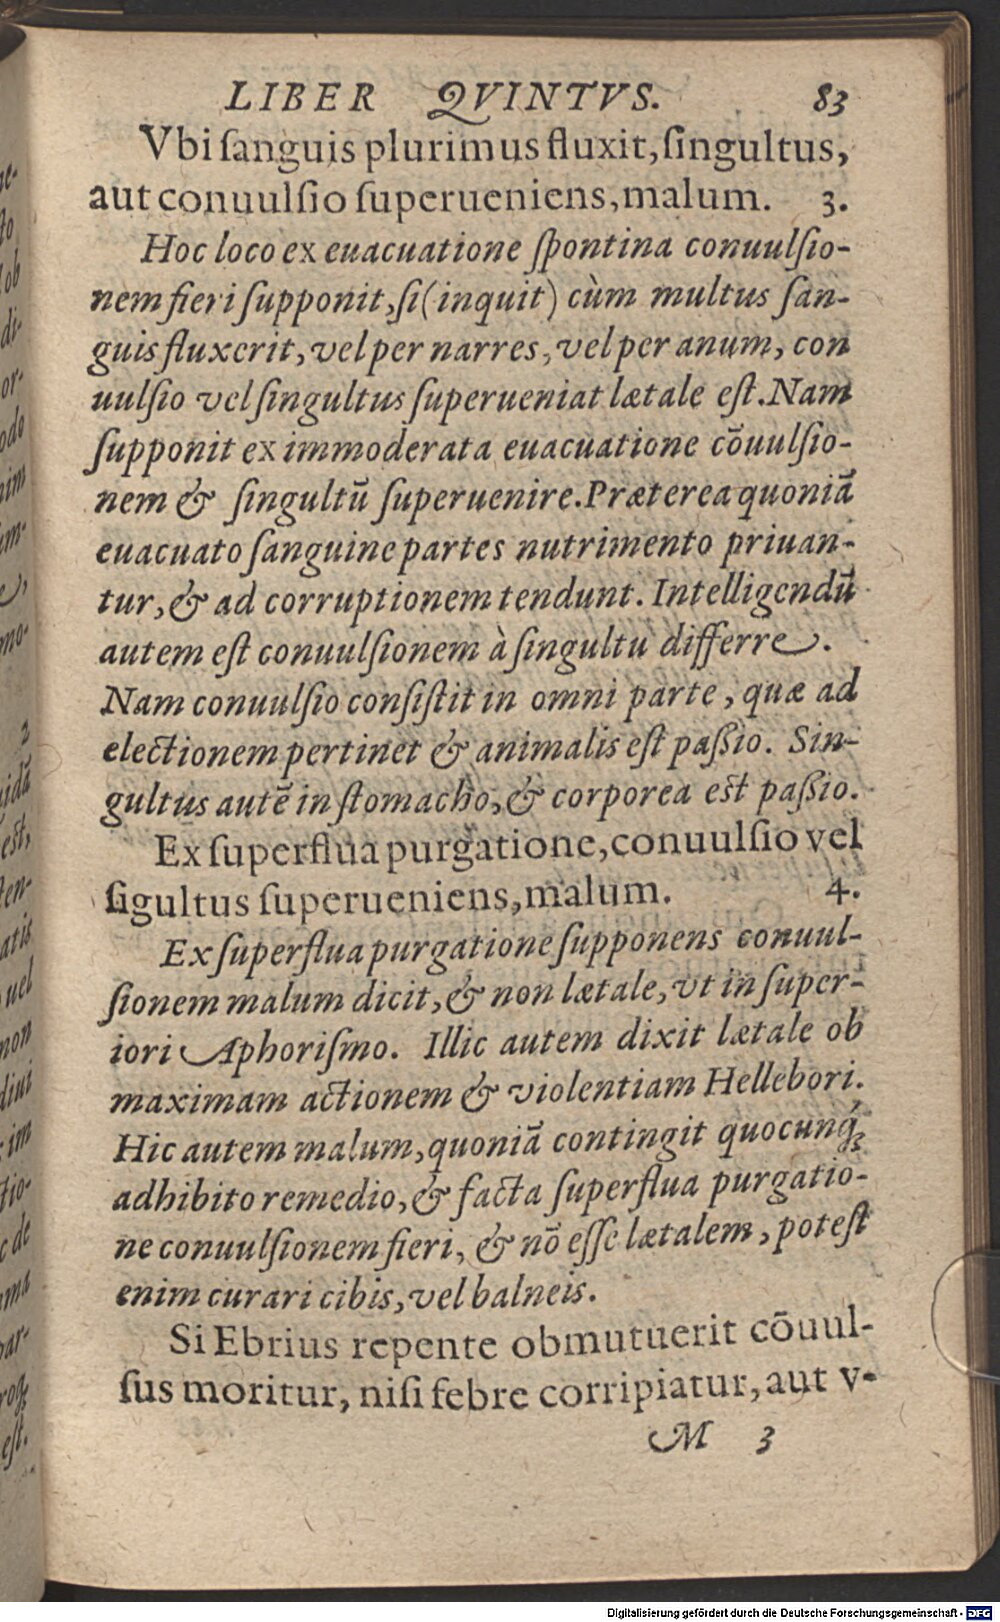 LIBER QVINTVS. 83
Vbi ſanguis plurimus fluxit, ſingultus,
aut conuulſio ſuperueniens, malum. 3.
Hoc loco ex euacuatione ſpontina conuulſio-
nem fieri ſupponit, ſi (inquit) cùm multus ſan-
guis fluxerit, vel per narres, vel per anum, con
uulſio vel ſingultus ſuperueniat lætale eſt. Nam
ſupponit ex immoderata euacuatione cōuulſio-
nem & ſingultū ſuperuenire. Præterea quoniā
euacuato ſanguine partes nutrimento priuan-
tur, & ad corruptionem tendunt. Intelligendū
autem eſt conuulſionem à ſingultu differre.
Nam conuulſio conſiſtit in omni parte, quæ ad
electionem pertinet & animalis eſt paſsio. Sin-
gultus autē in ſtomacho, & corporea est paſsio.
Ex ſuperflua purgatione, conuulſio vel
ſigultus ſuperueniens, malum. 4.
Ex ſuperflua purgatione ſupponens conuul-
ſionem malum dicit, & non lætale, vt in ſuper-
iori Aphoriſmo. Illic autem dixit lætale ob
maximam actionem & violentiam Hellebori.
Hic autem malum, quoniā contingit quocunq́;
adhibito remedio, & facta ſuperflua purgatio-
ne conuulſionem fieri, & nō eſſe lætalem, poteſt
enim curari cibis, vel balneis.
Si Ebrius repente obmutuerit cōuul-
ſus moritur, niſi febre corripiatur, aut v-
M 3
Digitalisierung gefördert durch die Deutsche Forschungsgemeinschaft - DFG